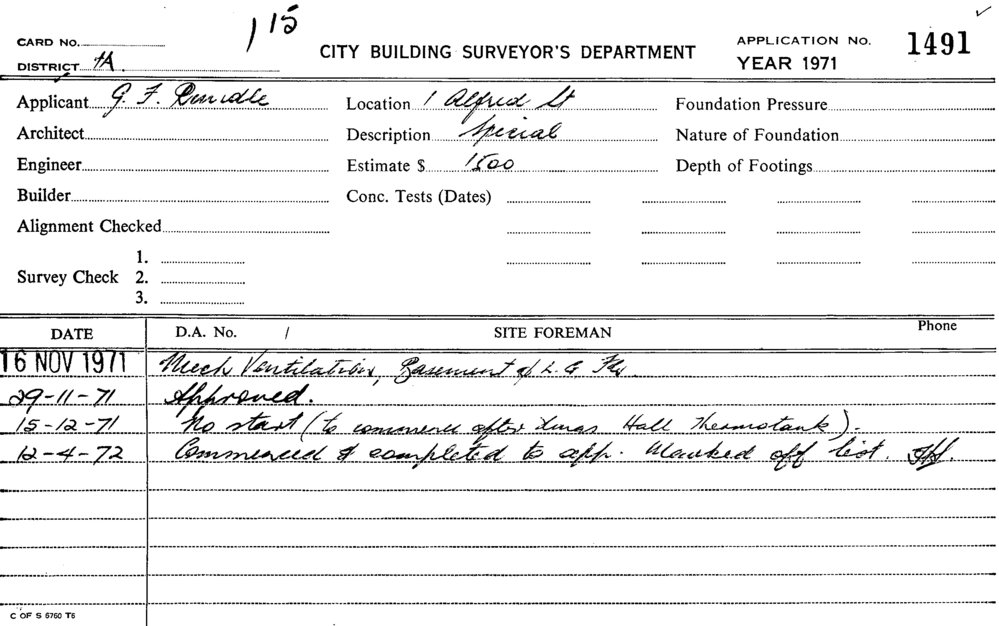 115
CARD No.
DISTRICT HA
CITY BUILDING SURVEYOR'S DEPARTMENT
APPLICATION No. 1491
YEAR 1971
Applicant G. F. Rundle Location 1 Alfred St Foundation Pressure
Architect Description Special Nature of Foundation
Engineer Estimate $ 1500 Depth of Footings
Builder Conc. Tests (Dates)
Alignment Checked
1.
Survey Check 2.
3.
DATE D.A. No. / SITE FOREMAN Phone
16 NOV 1971 Mech Ventilation, Basement & L. G. Flr
29-11-71 Approved.
15-12-71 No start (to commence after Xmas. Hall Thermotank).
12-4-72 Commenced & completed to app. Marked off list.
C OF S 6760 T6